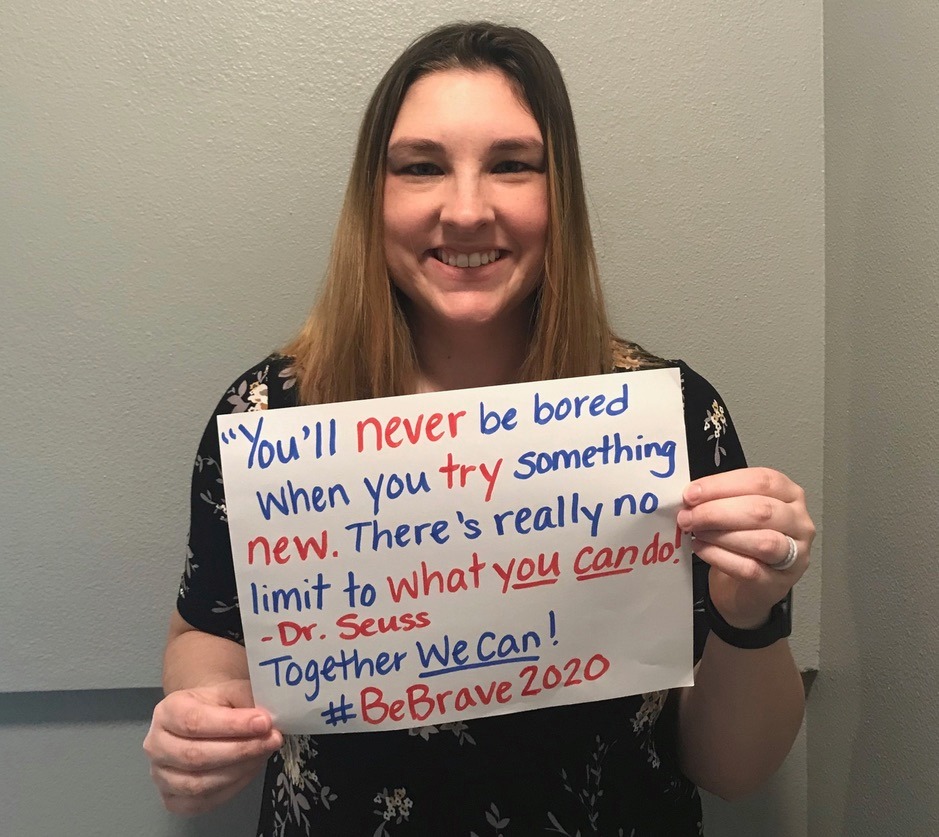 "You'll never be bored
when you try something
new. There's really no
limit to what you can do!"
-Dr. Seuss
Together We Can!
#BeBrave2020